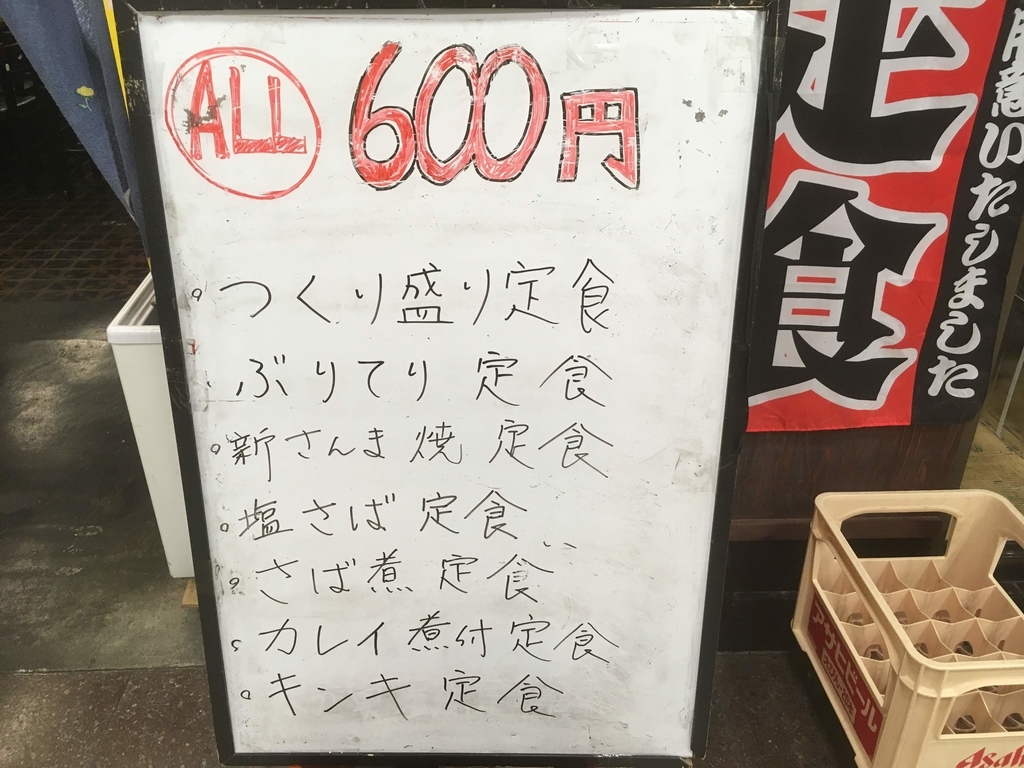 ALL 600円
つくり盛り定食
ぶりてり定食
新さんま焼定食
塩さば定食
さば煮定食
カレイ煮付定食
キンキ定食
定食
用意いたしました
アサヒビール
Asahi